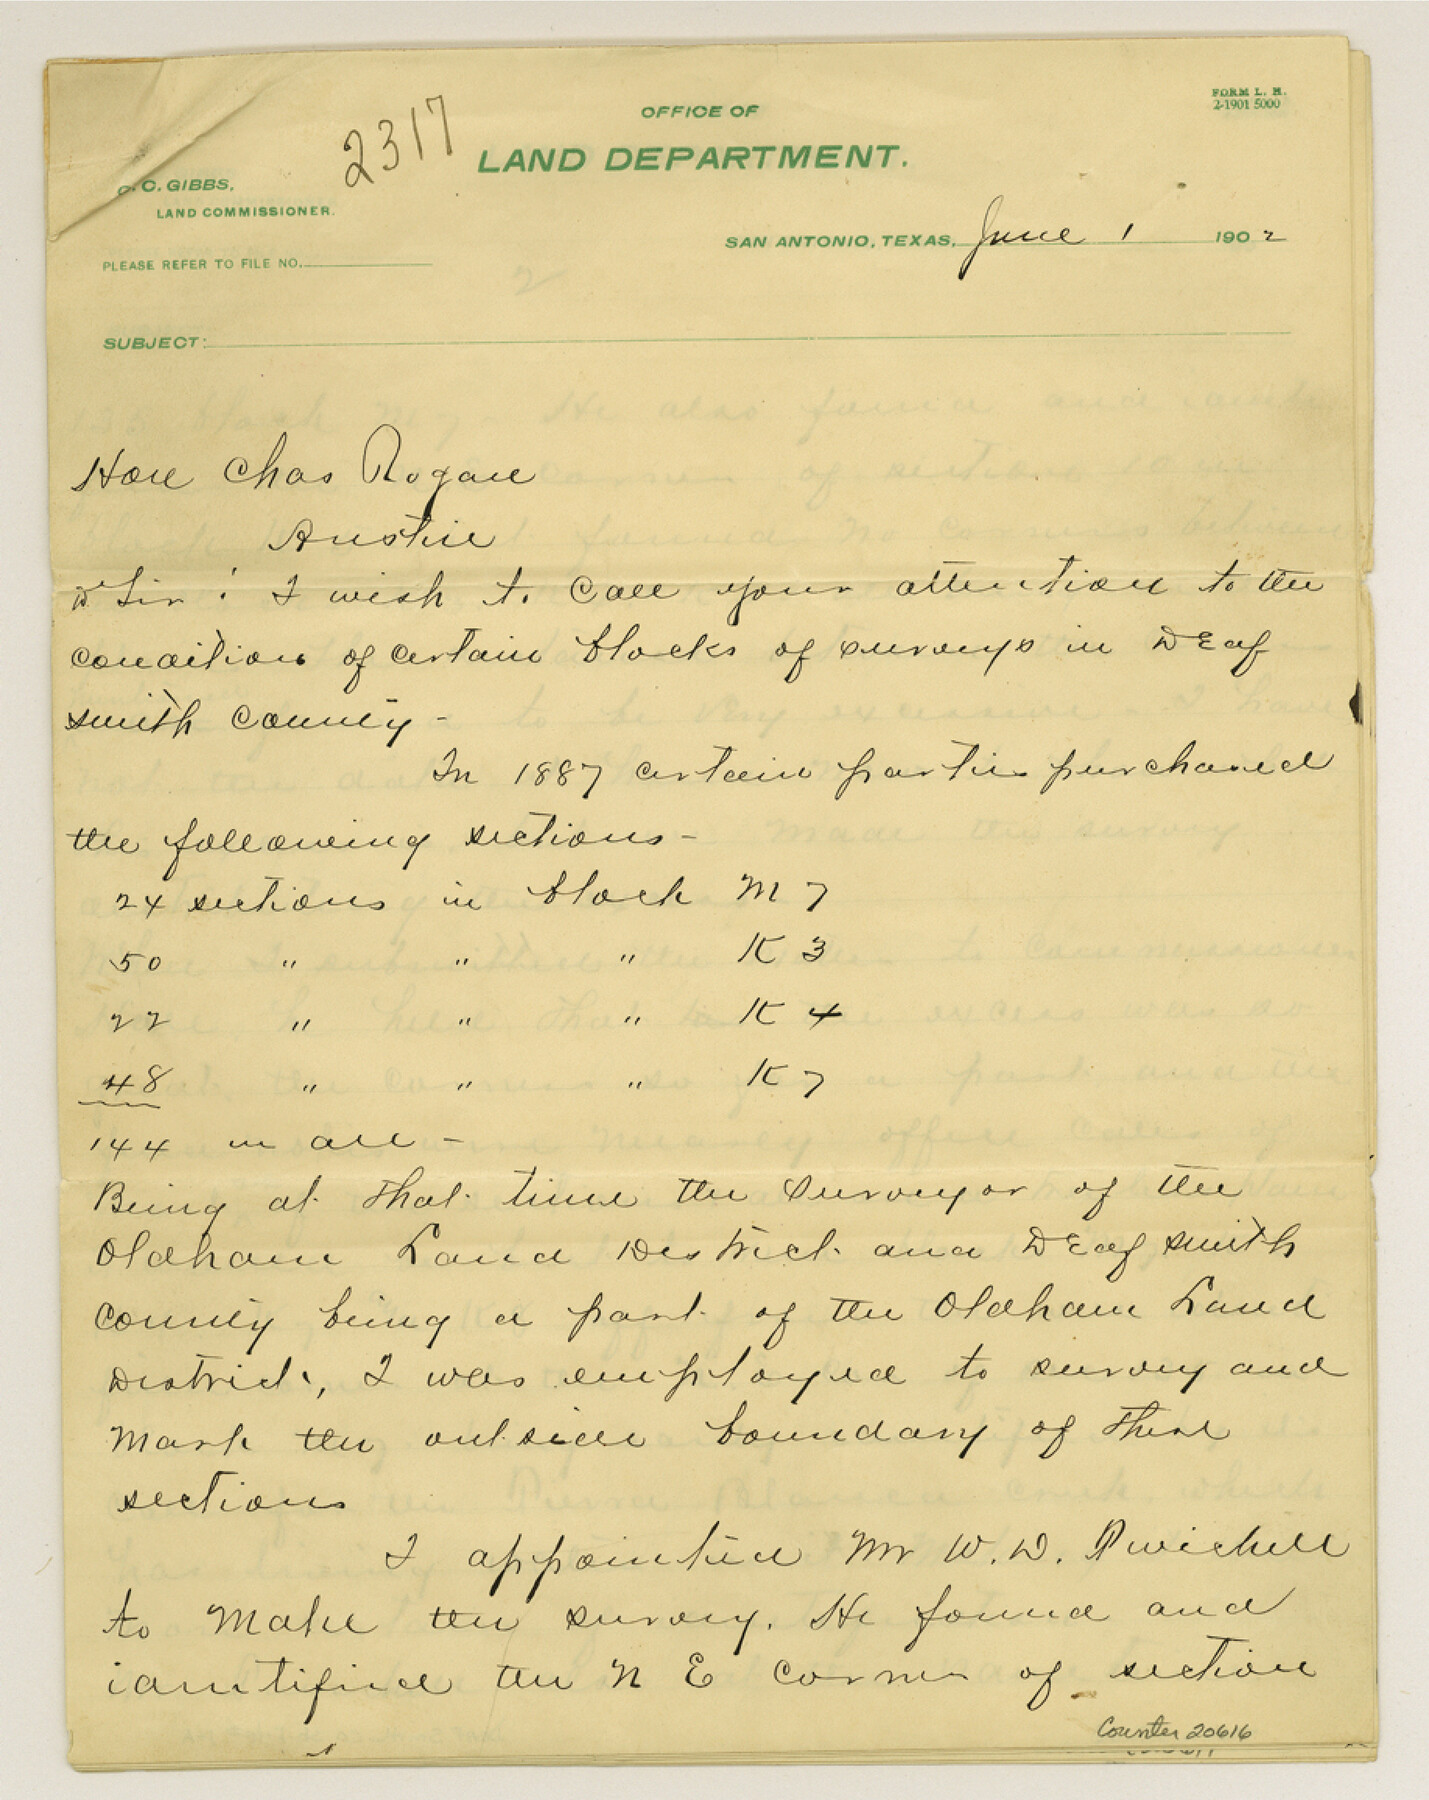 FORM L. H.
2-1901 5000
OFFICE OF
LAND DEPARTMENT.
2317
C. C. GIBBS,
LAND COMMISSIONER.
SAN ANTONIO, TEXAS, June 1 1902
PLEASE REFER TO FILE NO.
SUBJECT:
Hon Chas Rogan
Austin
D Sir! I wish to call your attention to the
condition of certain blocks of surveys in Deaf
Smith County -
In 1887 certain parties purchased
the following sections -
24 sections in block M 7
50 " " " K 3
22 " " " K 4
48 " " " K 7
144 in all -
Being at that time the surveyor of the
Oldham Land District and Deaf Smith
County being a part of the Oldham Land
District, I was employed to survey and
mark the outside boundary of these
sections
I appointed Mr W. D. Twichell
to make the survey. He found and
identified the N E corner of section
Counter 20616